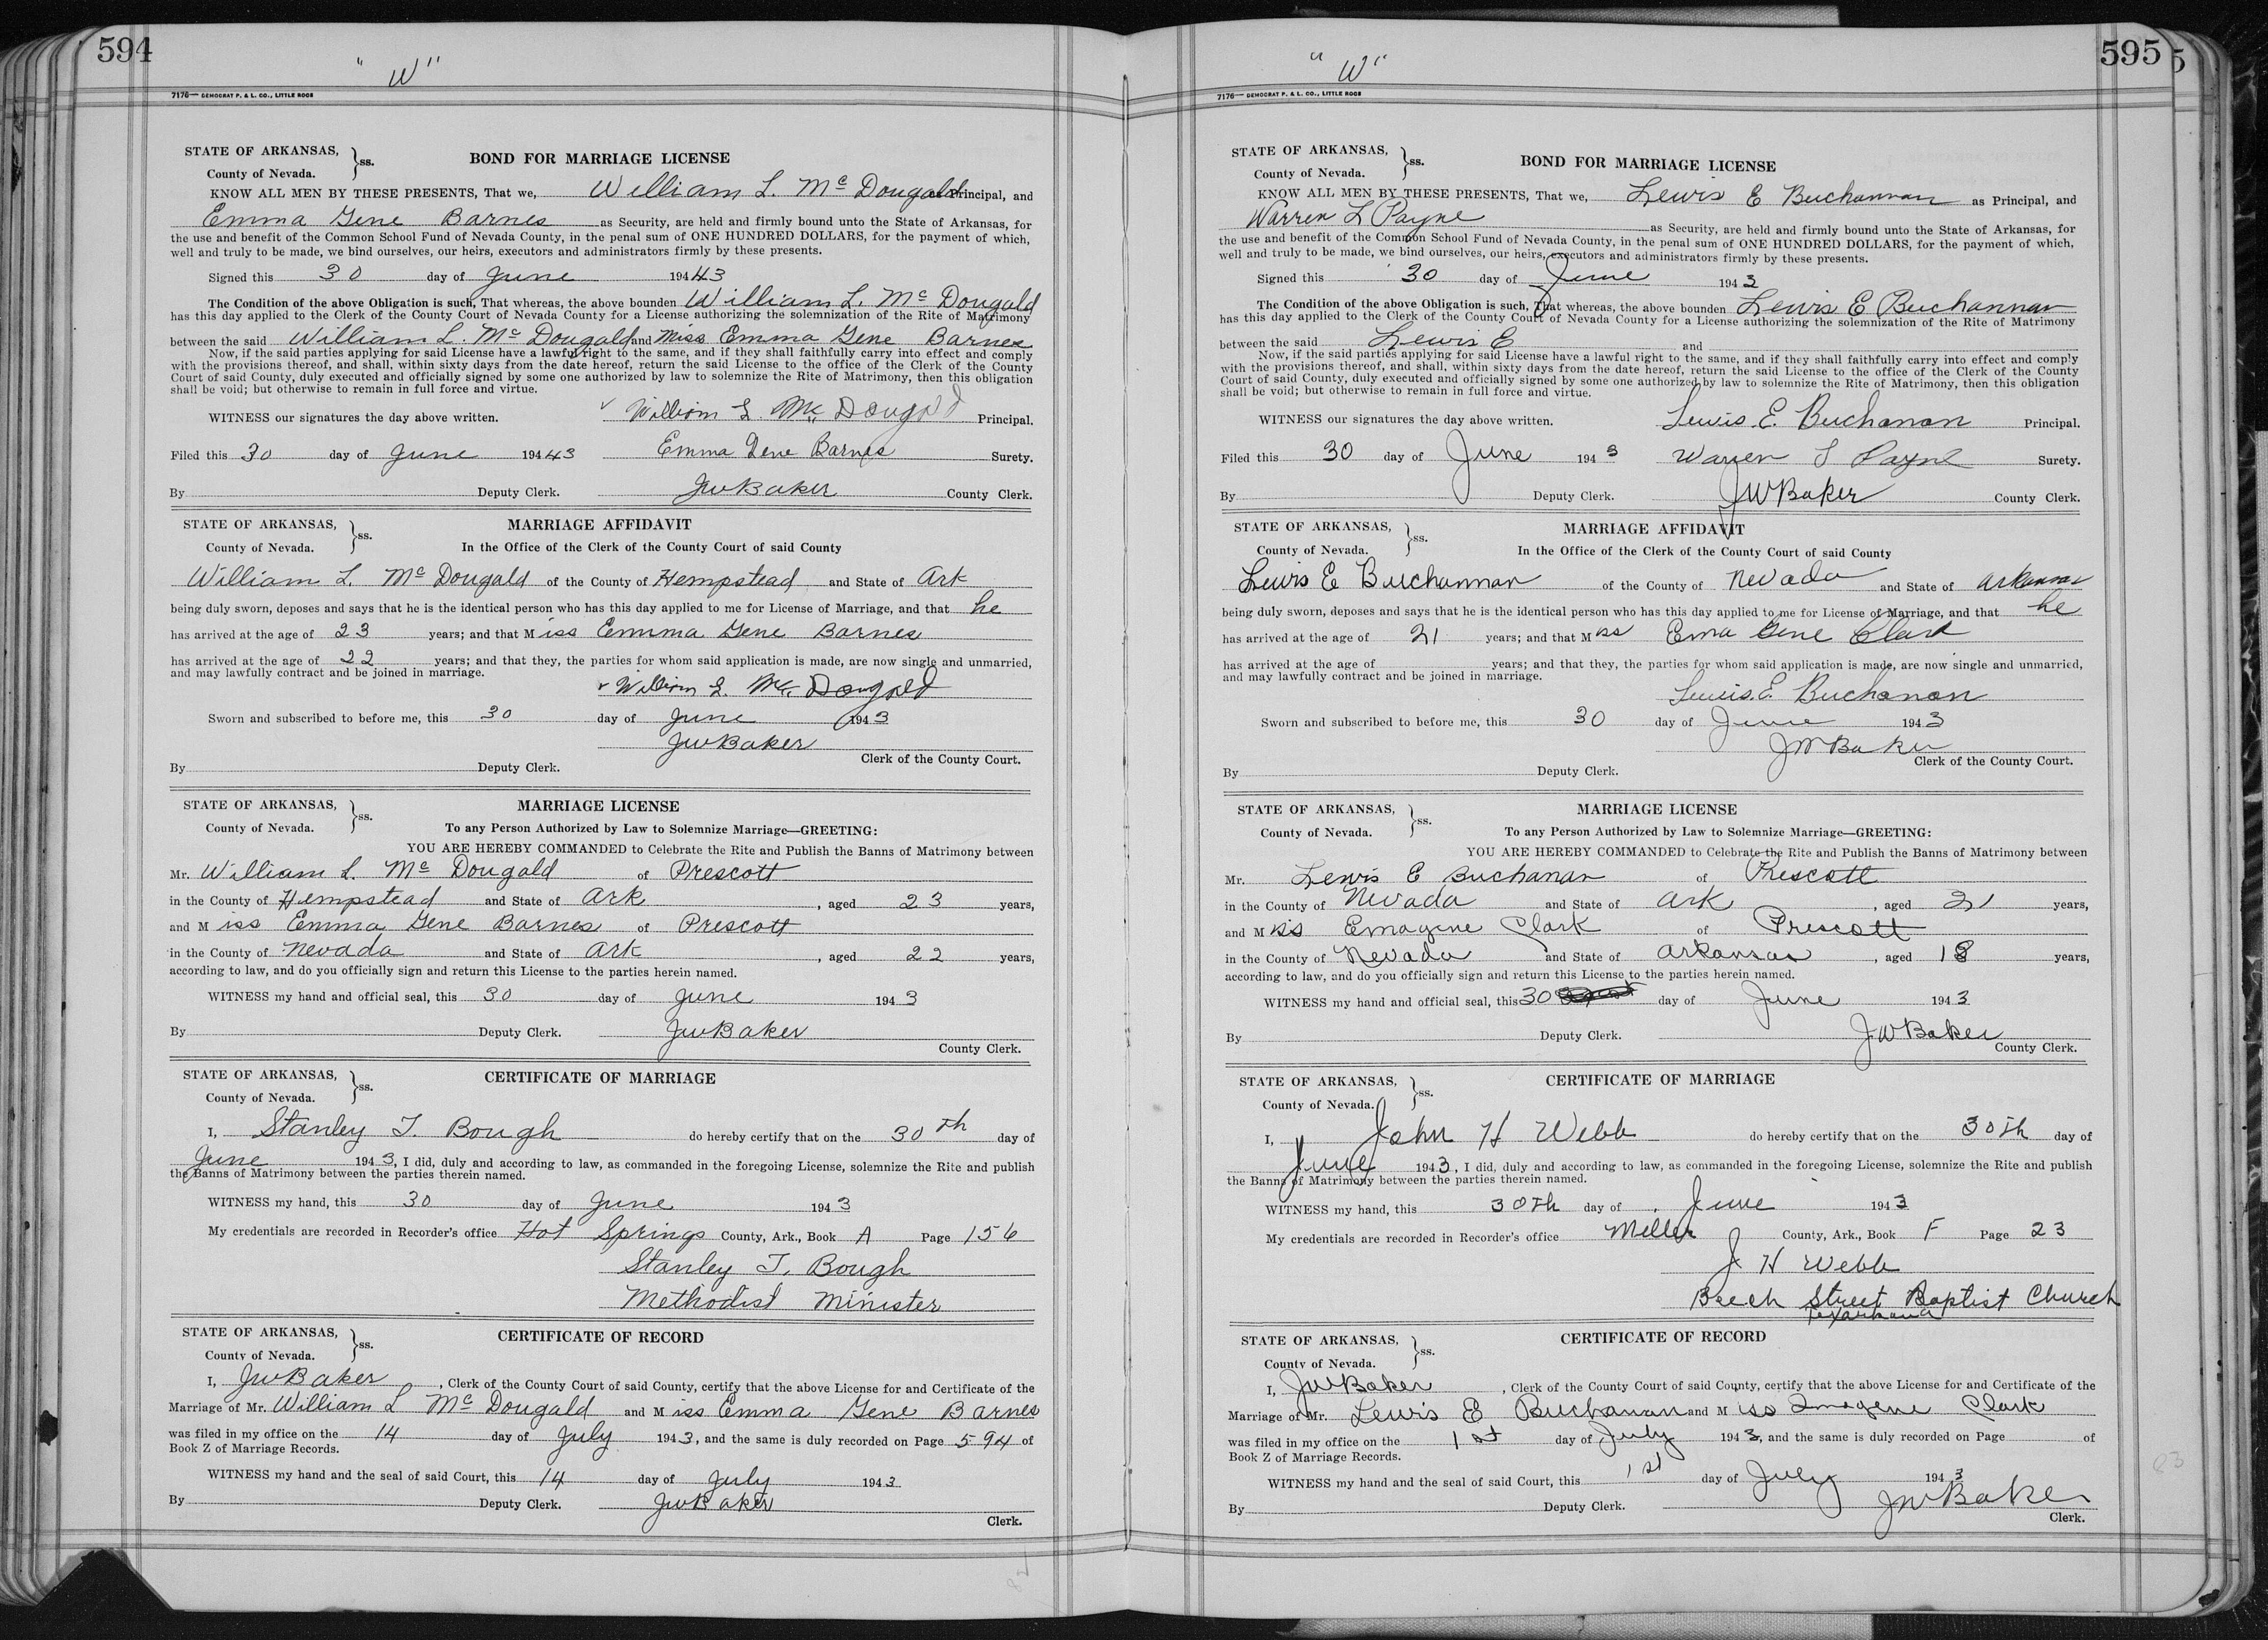 594
"W"
7176— DEMOCRAT P. & L. CO., LITTLE ROCK
STATE OF ARKANSAS, }ss.
County of Nevada.
BOND FOR MARRIAGE LICENSE
KNOW ALL MEN BY THESE PRESENTS, That we, William L. Mc Dougald as Principal, and
Emma Gene Barnes as Security, are held and firmly bound unto the State of Arkansas, for
the use and benefit of the Common School Fund of Nevada County, in the penal sum of ONE HUNDRED DOLLARS, for the payment of which,
well and truly to be made, we bind ourselves, our heirs, executors and administrators firmly by these presents.
Signed this 30 day of June 19443
The Condition of the above Obligation is such, That whereas, the above bounden William L. Mc Dougald
has this day applied to the Clerk of the County Court of Nevada County for a License authorizing the solemnization of the Rite of Matrimony
between the said William L. Mc Dougald and Miss Emma Gene Barnes
Now, if the said parties applying for said License have a lawful right to the same, and if they shall faithfully carry into effect and comply
with the provisions thereof, and shall, within sixty days from the date hereof, return the said License to the office of the Clerk of the County
Court of said County, duly executed and officially signed by some one authorized by law to solemnize the Rite of Matrimony, then this obligation
shall be void; but otherwise to remain in full force and virtue.
WITNESS our signatures the day above written. William L Mc Dougald Principal.
Filed this 30 day of June 19443 Emma Gene Barnes Surety.
By Deputy Clerk. JW Baker County Clerk.
STATE OF ARKANSAS, }ss.
County of Nevada.
MARRIAGE AFFIDAVIT
In the Office of the Clerk of the County Court of said County
William L. Mc Dougald of the County of Hempstead and State of Ark
being duly sworn, deposes and says that he is the identical person who has this day applied to me for License of Marriage, and that he
has arrived at the age of 23 years; and that Miss Emma Gene Barnes
has arrived at the age of 22 years; and that they, the parties for whom said application is made, are now single and unmarried,
and may lawfully contract and be joined in marriage.
William L. Mc Dougald
Sworn and subscribed to before me, this 30 day of June 1943
JW Baker
Clerk of the County Court.
By Deputy Clerk.
STATE OF ARKANSAS, }ss.
County of Nevada.
MARRIAGE LICENSE
To any Person Authorized by Law to Solemnize Marriage—GREETING:
YOU ARE HEREBY COMMANDED to Celebrate the Rite and Publish the Banns of Matrimony between
Mr. William L. Mc Dougald of Prescott
in the County of Hempstead and State of Ark, aged 23 years,
and Miss Emma Gene Barnes of Prescott
in the County of Nevada and State of Ark, aged 22 years,
according to law, and do you officially sign and return this License to the parties herein named.
WITNESS my hand and official seal, this 30 day of June 1943
By Deputy Clerk. JW Baker
County Clerk.
STATE OF ARKANSAS, }ss.
County of Nevada.
CERTIFICATE OF MARRIAGE
I, Stanley T. Bough do hereby certify that on the 30th day of
June 1943, I did, duly and according to law, as commanded in the foregoing License, solemnize the Rite and publish
the Banns of Matrimony between the parties therein named.
WITNESS my hand, this 30 day of June 1943
My credentials are recorded in Recorder's office Hot Springs County, Ark., Book A Page 156
Stanley T. Bough
Methodist Minister
STATE OF ARKANSAS, }ss.
County of Nevada.
CERTIFICATE OF RECORD
I, JW Baker, Clerk of the County Court of said County, certify that the above License for and Certificate of the
Marriage of Mr. William L Mc Dougald and Miss Emma Gene Barnes
was filed in my office on the 14 day of July 1943, and the same is duly recorded on Page 594 of
Book Z of Marriage Records.
WITNESS my hand and the seal of said Court, this 14 day of July 1943
By Deputy Clerk. JW Baker
Clerk.
595
"W"
7176— DEMOCRAT P. & L. CO., LITTLE ROCK
STATE OF ARKANSAS, }ss.
County of Nevada.
BOND FOR MARRIAGE LICENSE
KNOW ALL MEN BY THESE PRESENTS, That we, Lewis E Buchannan as Principal, and
Warren L Payne as Security, are held and firmly bound unto the State of Arkansas, for
the use and benefit of the Common School Fund of Nevada County, in the penal sum of ONE HUNDRED DOLLARS, for the payment of which,
well and truly to be made, we bind ourselves, our heirs, executors and administrators firmly by these presents.
Signed this 30 day of June 1943
The Condition of the above Obligation is such, That whereas, the above bounden Lewis E Buchannan
has this day applied to the Clerk of the County Court of Nevada County for a License authorizing the solemnization of the Rite of Matrimony
between the said Lewis E and
Now, if the said parties applying for said License have a lawful right to the same, and if they shall faithfully carry into effect and comply
with the provisions thereof, and shall, within sixty days from the date hereof, return the said License to the office of the Clerk of the County
Court of said County, duly executed and officially signed by some one authorized by law to solemnize the Rite of Matrimony, then this obligation
shall be void; but otherwise to remain in full force and virtue.
WITNESS our signatures the day above written. Lewis. E. Buchanan Principal.
Filed this 30 day of June 1943 Warren L Payne Surety.
By Deputy Clerk. JW Baker County Clerk.
STATE OF ARKANSAS, }ss.
County of Nevada.
MARRIAGE AFFIDAVIT
In the Office of the Clerk of the County Court of said County
Lewis E Buchannan of the County of Nevada and State of Arkansas
being duly sworn, deposes and says that he is the identical person who has this day applied to me for License of Marriage, and that he
has arrived at the age of 21 years; and that Miss Ema Gene Clark
has arrived at the age of years; and that they, the parties for whom said application is made, are now single and unmarried,
and may lawfully contract and be joined in marriage.
Lewis. E. Buchanan
Sworn and subscribed to before me, this 30 day of June 1943
JW Baker
Clerk of the County Court.
By Deputy Clerk.
STATE OF ARKANSAS, }ss.
County of Nevada.
MARRIAGE LICENSE
To any Person Authorized by Law to Solemnize Marriage—GREETING:
YOU ARE HEREBY COMMANDED to Celebrate the Rite and Publish the Banns of Matrimony between
Mr. Lewis E Buchanan of Prescott
in the County of Nevada and State of Ark, aged 21 years,
and Miss Emagine Clark of Prescott
in the County of Nevada and State of Arkansas, aged 18 years,
according to law, and do you officially sign and return this License to the parties herein named.
WITNESS my hand and official seal, this 30 day of June 1943
By Deputy Clerk. JW Baker
County Clerk.
STATE OF ARKANSAS, }ss.
County of Nevada.
CERTIFICATE OF MARRIAGE
I, John H Webb do hereby certify that on the 30th day of
June 1943, I did, duly and according to law, as commanded in the foregoing License, solemnize the Rite and publish
the Banns of Matrimony between the parties therein named.
WITNESS my hand, this 30th day of June 1943
My credentials are recorded in Recorder's office Miller County, Ark., Book F Page 23
J H Webb
Beech Street Baptist Church
Texarkana
STATE OF ARKANSAS, }ss.
County of Nevada.
CERTIFICATE OF RECORD
I, JW Baker, Clerk of the County Court of said County, certify that the above License for and Certificate of the
Marriage of Mr. Lewis E Buchanan and Miss Imogene Clark
was filed in my office on the 1st day of July 1943, and the same is duly recorded on Page of
Book Z of Marriage Records.
WITNESS my hand and the seal of said Court, this 1st day of July 1943
By Deputy Clerk. JW Baker
Clerk.
83